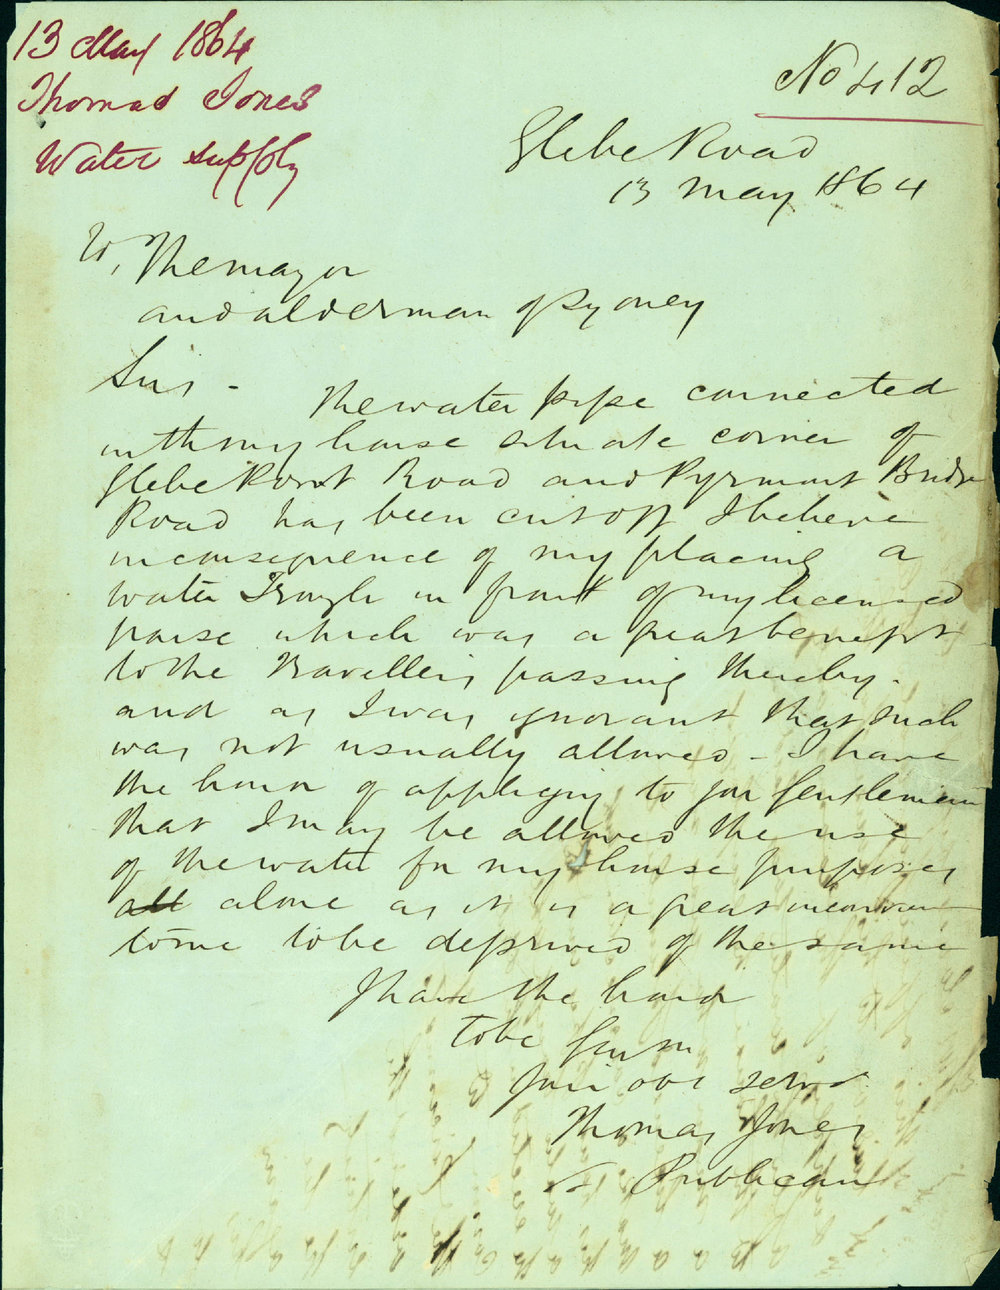 13 May 1864
Thomas Jones
Water supply
No 412
Glebe Road
13 May 1864
To, The mayor
and alderman of Sydney
Sirs - The water pipe connected
with my house situate corner of
Glebe Point Road and Pyrmont Bridge
Road has been cut off I believe
in consequence of my placing a
water Trough in front of my licensed
house which was a great benefit
to the Travellers passing thereby.
and as I was ignorant that such
was not usually allowed - I have
the honor of applying to you Gentlemen
that I may be allowed the use
of the water for my house purposes
all alone as it is a great
to me to be deprived of the same
I have the honor
to be
your obt servt
Thomas Jones
Publican